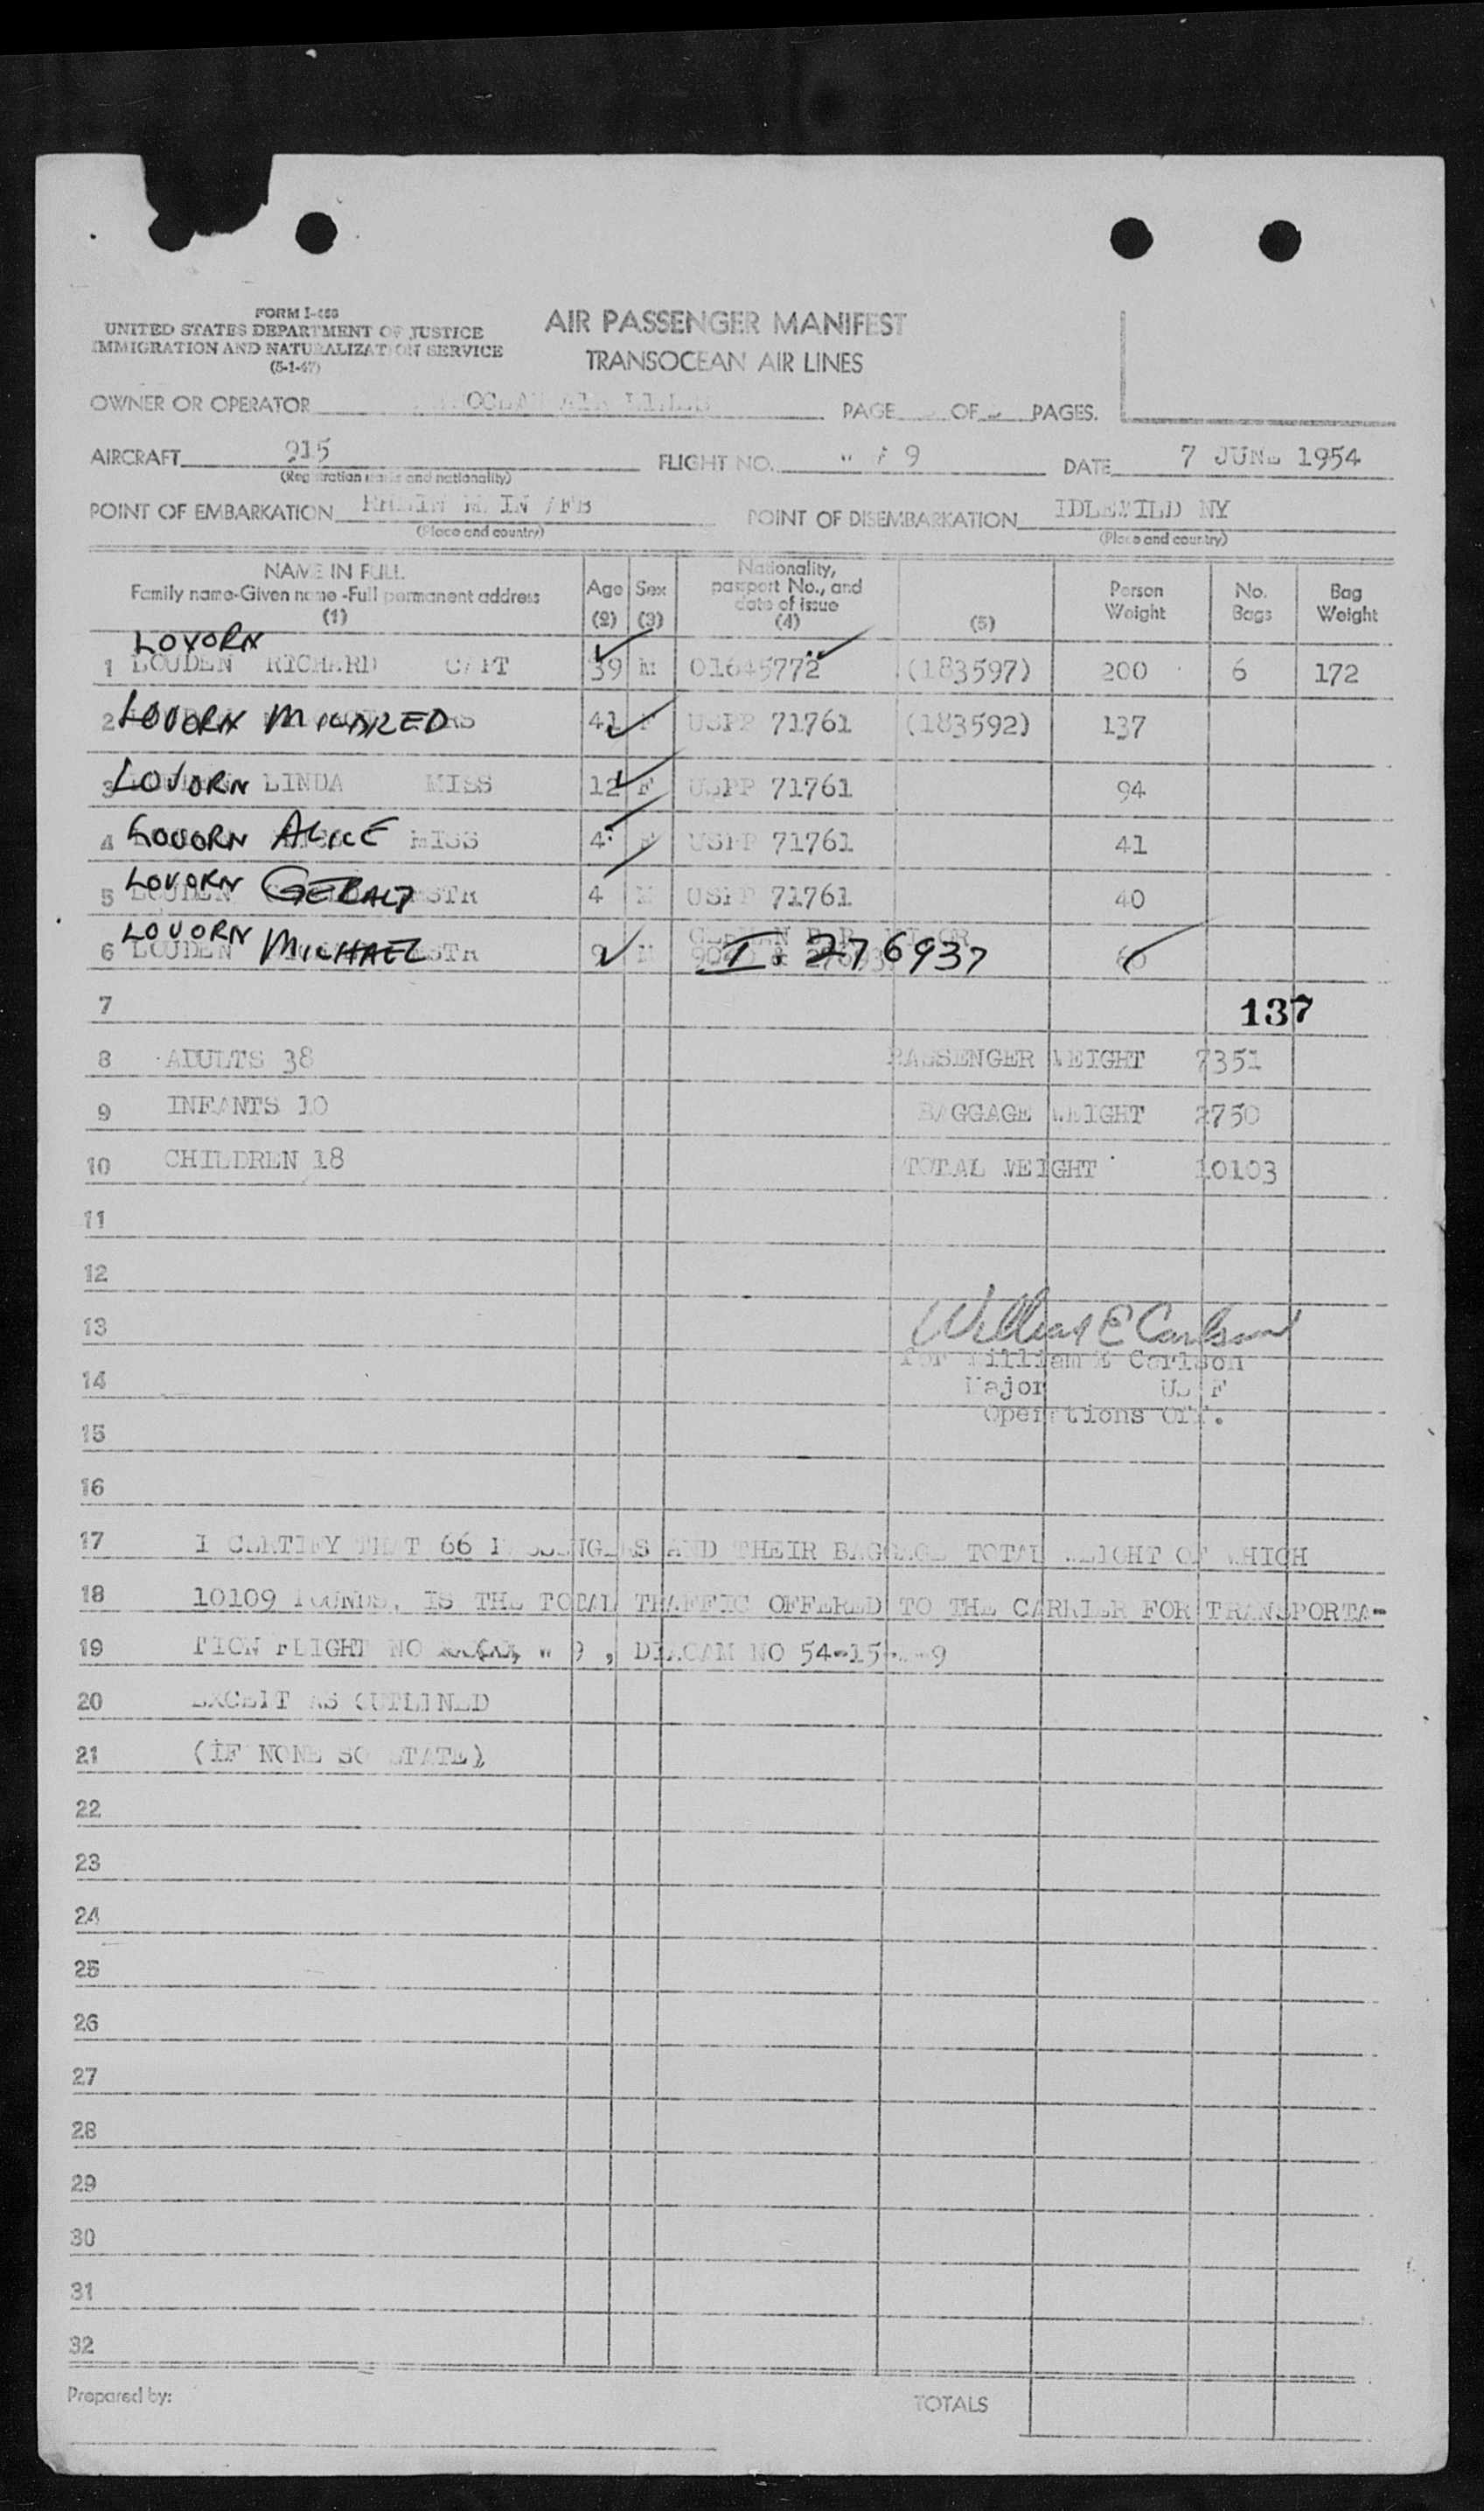 FORM I-466
UNITED STATES DEPARTMENT OF JUSTICE
IMMIGRATION AND NATURALIZATION SERVICE
(5-1-47)
AIR PASSENGER MANIFEST
TRANSOCEAN AIR LINES
OWNER OR OPERATOR OCEAN AIR LINES PAGE OF PAGES.
AIRCRAFT 915 FLIGHT NO. 9 DATE 7 JUNE 1954
(Registration marks and nationality)
POINT OF EMBARKATION RHEIN MAIN AFB POINT OF DISEMBARKATION IDLEWILD NY
(Place and country) (Place and country)
NAME IN FULL Family name-Given name-Full permanent address (1) Age (2) Sex (3) Nationality, passport No., and date of issue (4) (5) Person Weight No. Bags Bag Weight
LOVORN
1 LOUDEN RICHARD CAPT 39 M 01645772 (183597) 200 6 172
2 LOVORN MILDRED MRS 41 F USPP 71761 (183592) 137
3 LOVORN LINDA MISS 12 F USPP 71761 94
4 LOVORN ALICE MISS 4 F USPP 71761 41
LOVORN
5 LOUDEN GERALD MSTR 4 M USPP 71761 40
LOVORN
6 LOUDEN MICHAEL MSTR 9 M I. 276937 60
7 137
8 ADULTS 38 PASSENGER WEIGHT 7351
9 INFANTS 10 BAGGAGE WEIGHT 2750
10 CHILDREN 18 TOTAL WEIGHT 10103
11
12
13 William E Carlson
for William E Carlson
14 Major USAF
Operations Off.
15
16
17 I CERTIFY THAT 66 PASSENGERS AND THEIR BAGGAGE TOTAL WEIGHT OF WHICH
18 10109 POUNDS, IS THE TOTAL TRAFFIC OFFERED TO THE CARRIER FOR TRANSPORTA-
19 TION FLIGHT NO W 9 , DIACAM NO 54-15- -9
20 EXCEPT AS OUTLINED
21 (IF NONE SO STATE)
22
23
24
25
26
27
28
29
30
31
32
Prepared by: TOTALS